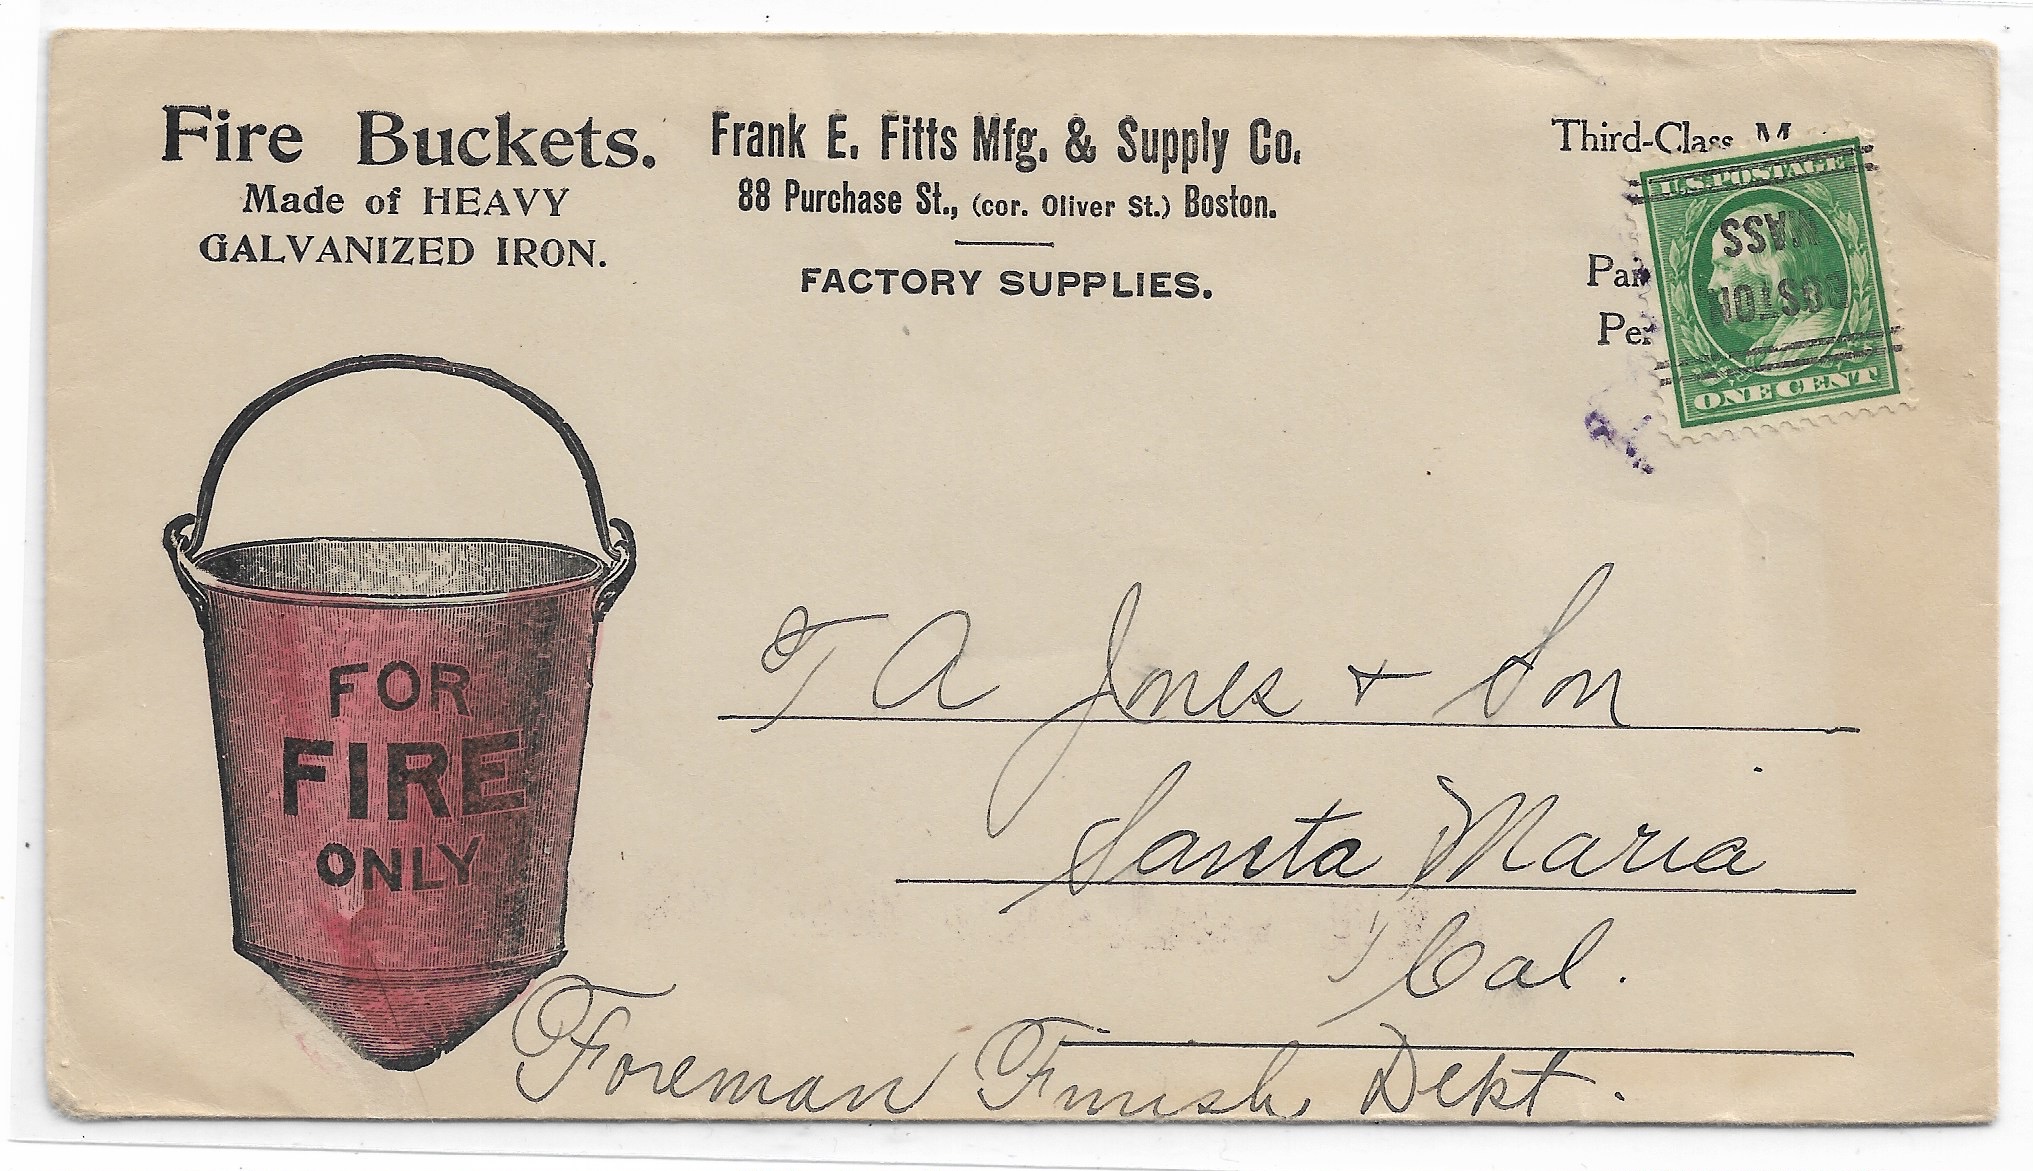 Fire Buckets.
Made of HEAVY
GALVANIZED IRON.
Frank E. Fitts Mfg. & Supply Co.
88 Purchase St., (cor. Oliver St.) Boston.
FACTORY SUPPLIES.
Third-Class
U.S. POSTAGE
BOSTON
MASS
ONE CENT
FOR
FIRE
ONLY
T A Jones + Son
Santa Maria
Cal.
Foreman Finish Dept.